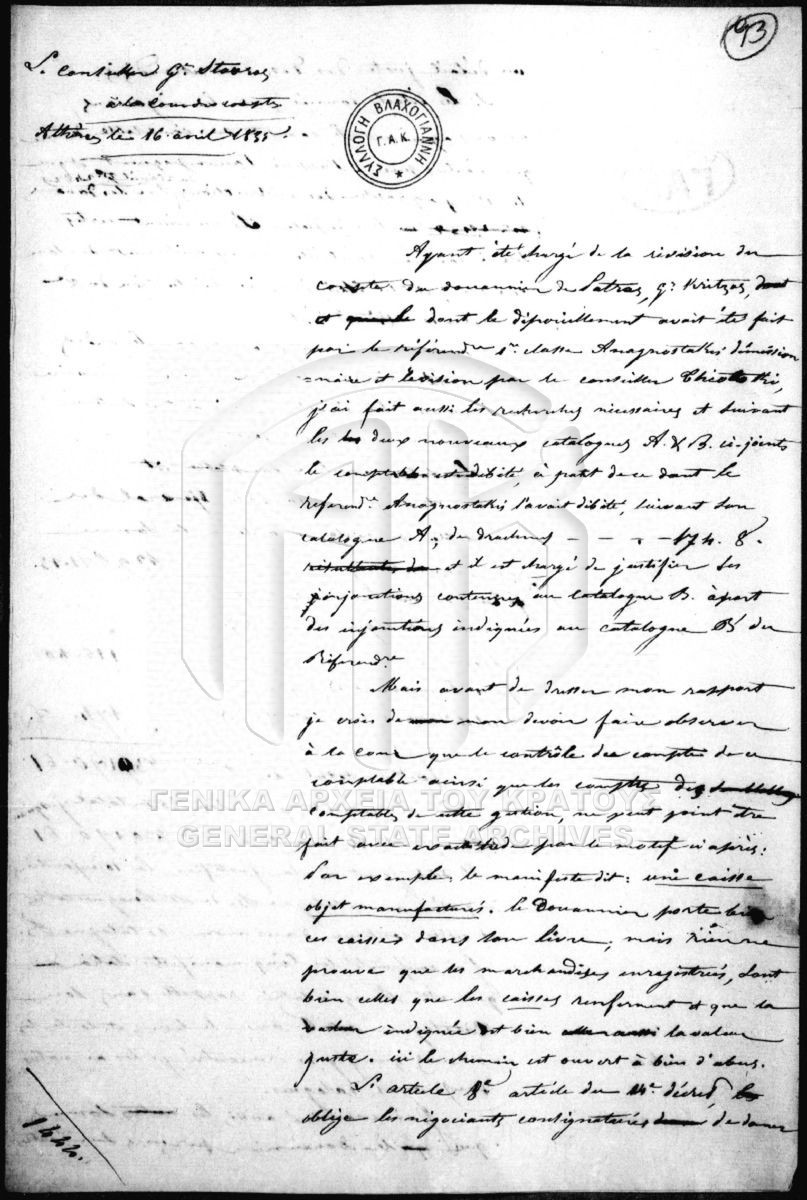 93
Le conseiller G. Stavros
à la cour des compts
Athènes le 16 avril 1835.
ΣΥΛΛΟΓΗ ΒΛΑΧΟΓΙΑΝΝΗ
Γ.Α.Κ.
Ayant été chargé de la révision du
compte du douannier de Patras, G. Kritzas, dont
et dont le dépouillement avait été fait
par le référendre 1re classe Anagnostakis démission
naire et révision par le conseiller Théotoki,
j'ai fait aussi les recherches nécessaires et suivant
les deux nouveaux catalogues A. & B. ci-joints
le comptable est débité, à part de ce dont le
référendre Anagnostakis l'avait débité, suivant son
catalogue A, de drachmes - - - 174. 8.
et il est chargé de justifier les
injonctions contenues au catalogue B. àpart
des injonctions indiquées au catalogue B du
Référendre
Mais avant de dresser mon rapport
je crois de mon devoir faire observer
à la Cour que le contrôle des comptes de ce
comptable ainsi que les comptes des
comptables de cette gestion, ne peut point être
fait avec exactitude par le motif ci après:
Par exemple, le manifeste dit: une caisse
objet manufacturés. le Douannier porte bien
ces caisses dans son livre; mais rien ne
prouve que les marchandises enregistrées, sont
bien celles que les caisses renferment et que la
valeur indiquée est bien la valeur
juste. ici le chemin est ouvert à bien d'abus.
L'article 8e article du 14e décret,
oblige les négociants consignataires de donner
1444.
ΓΕΝΙΚΑ ΑΡΧΕΙΑ ΤΟΥ ΚΡΑΤΟΥΣ
GENERAL STATE ARCHIVES